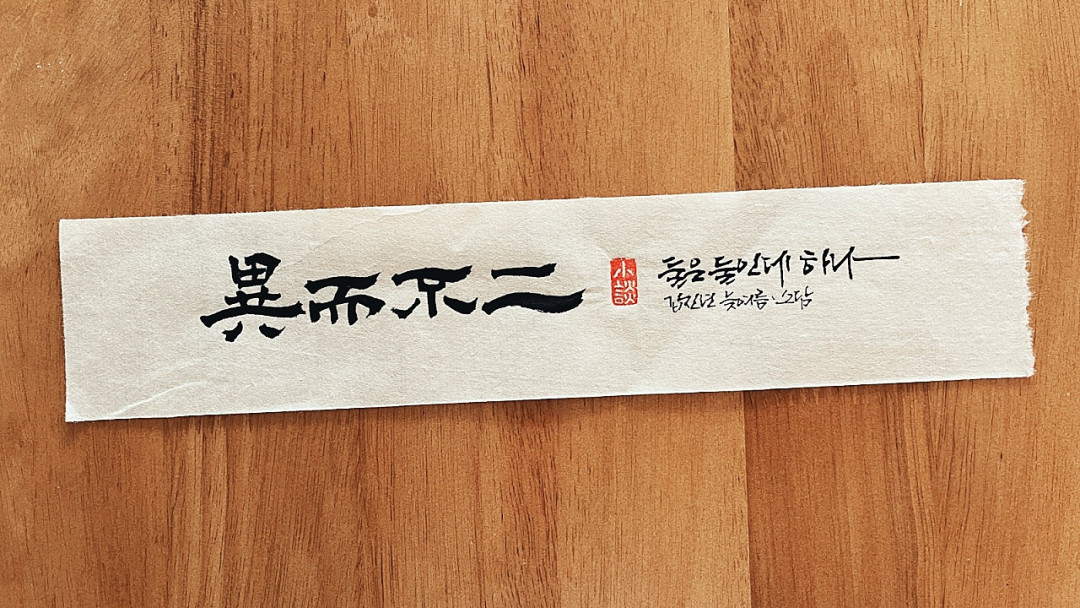 異而不二
小談
둘은 둘인데 하나
갑진년 늦여름. 소담